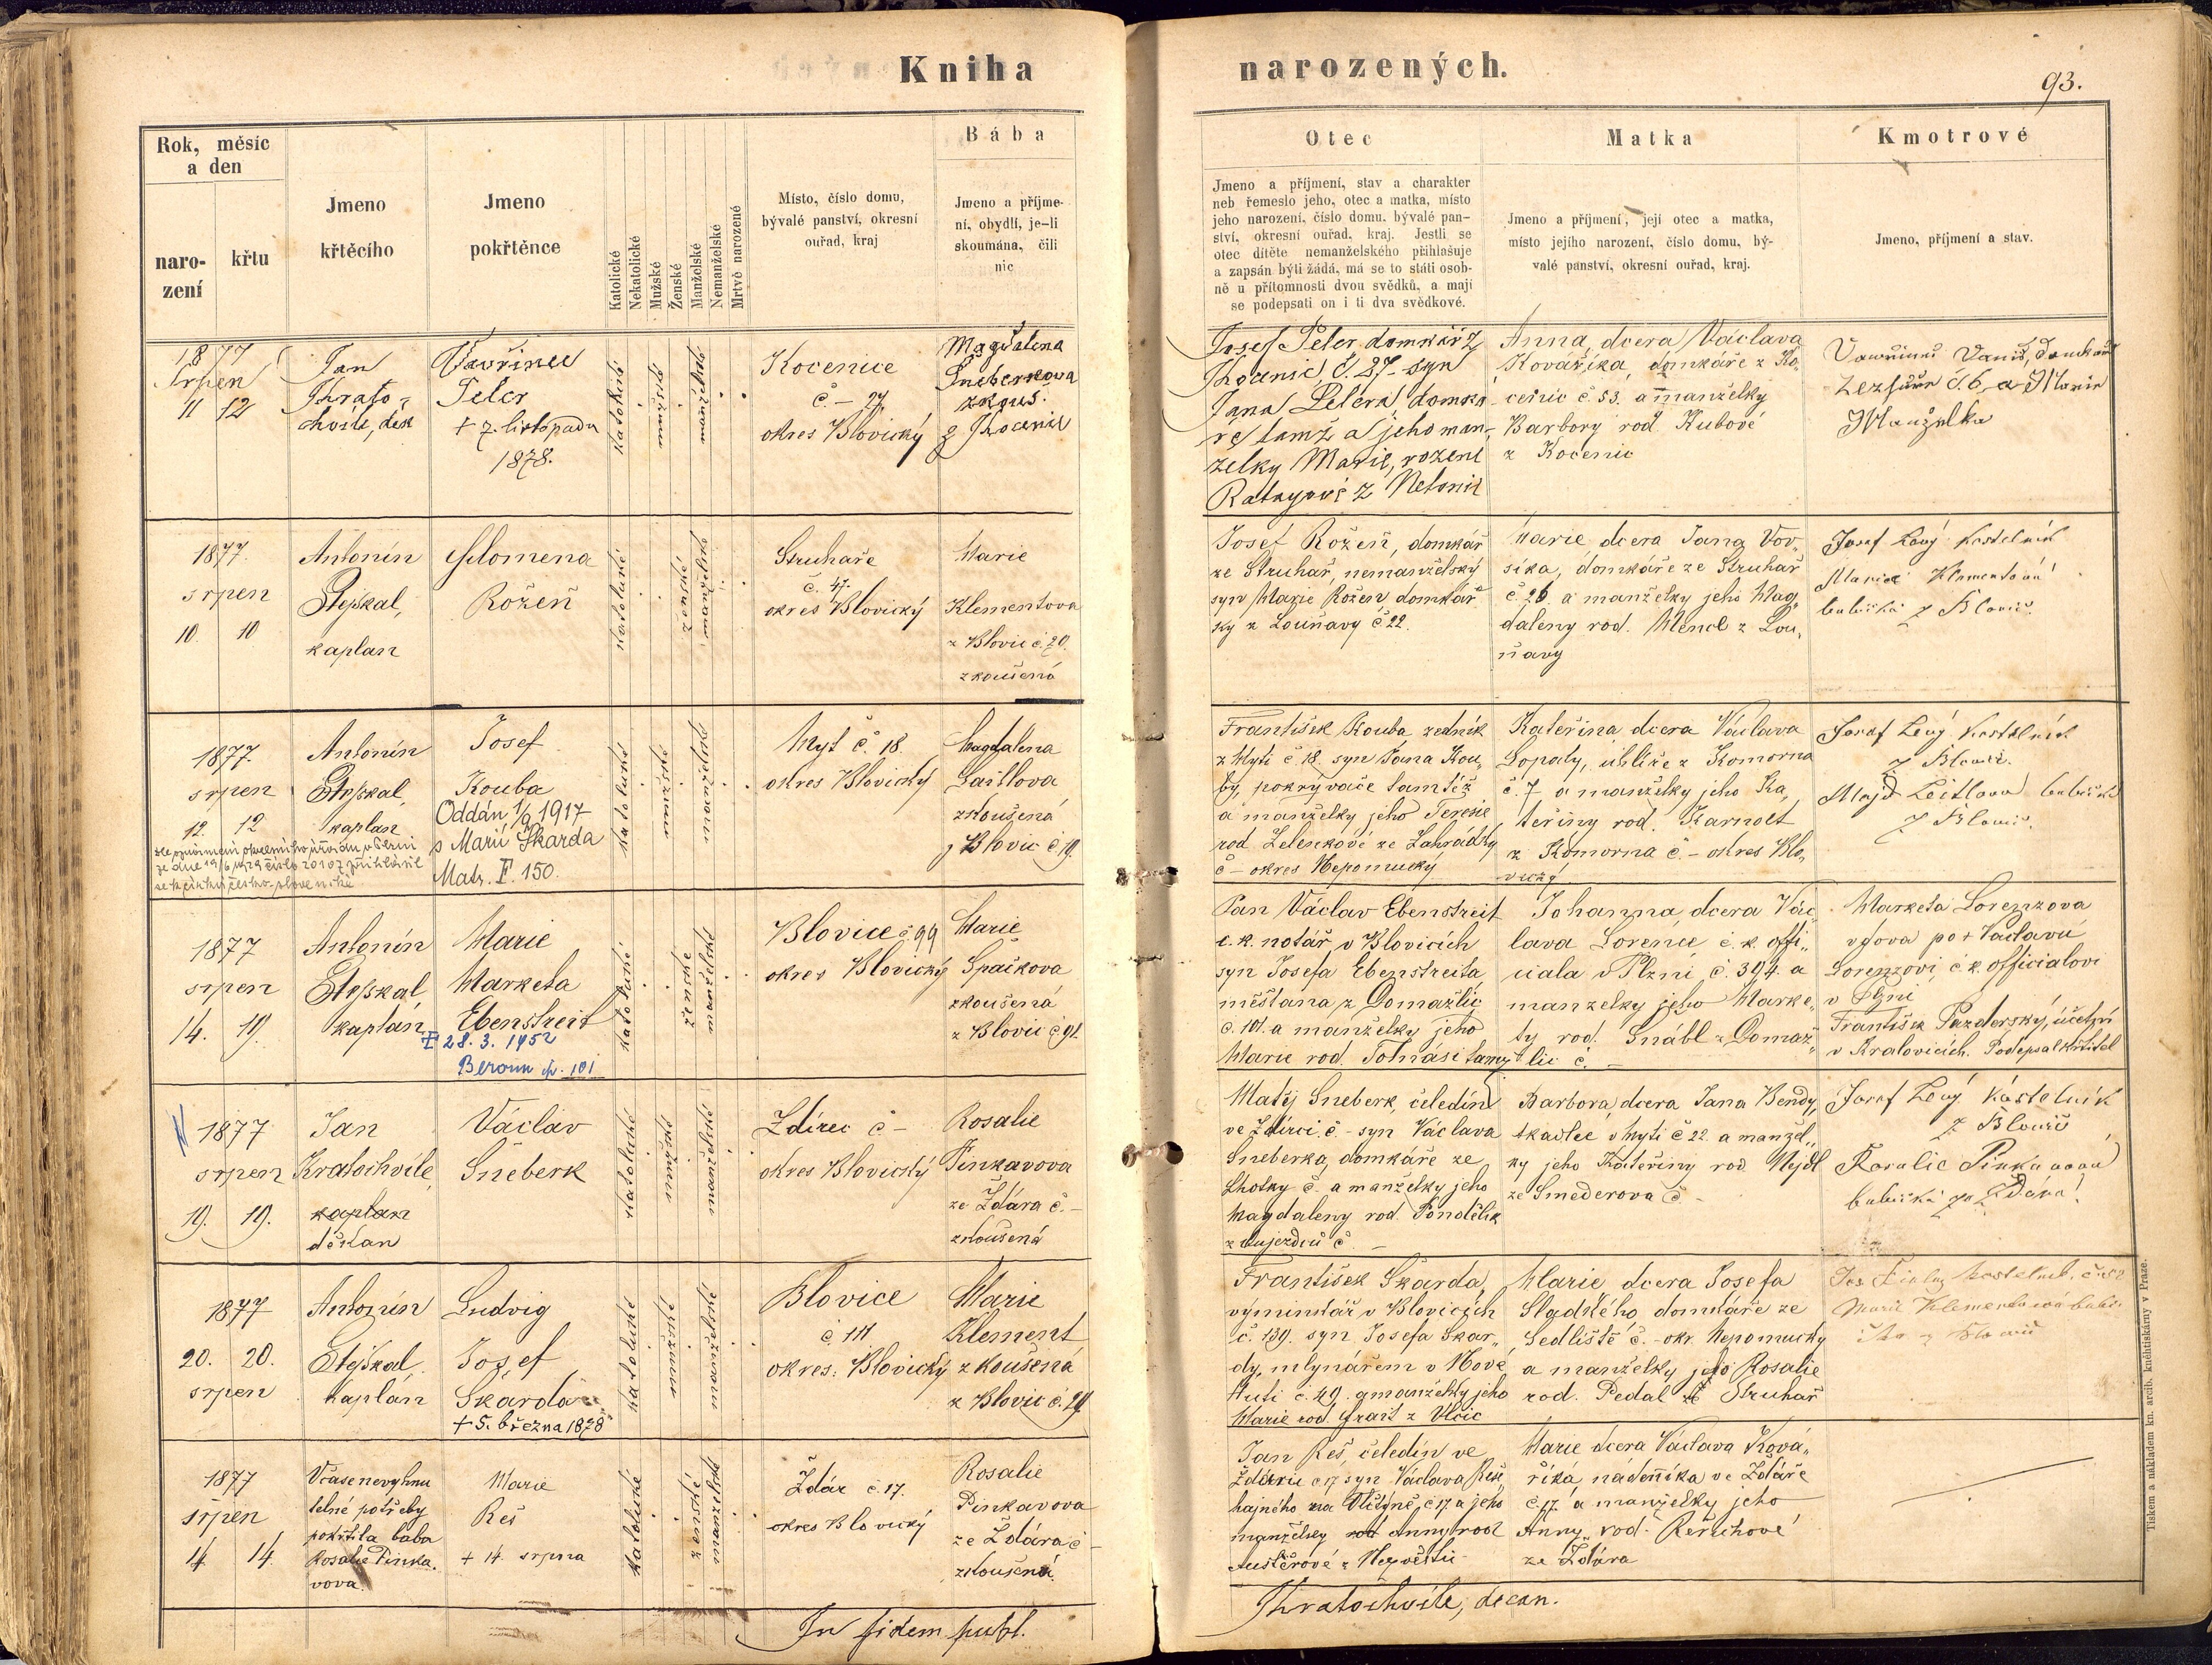 Kniha
narozených.
93.
Rok, měsíc
a den
naro-
zení
křtu
Jmeno
křtěcího
Jmeno
pokřtěnce
Katolické
Nekatolické
Mužské
Ženské
Manželské
Nemanželské
Mrtvě narozené
Místo, číslo domu,
bývalé panství, okresní
ouřad, kraj
Bába
Jmeno a příjme-
ní, obydlí, je-li
skoumána, čili
nic
Otec
Jmeno a příjmení, stav a charakter
neb řemeslo jeho, otec a matka, místo
jeho narození, číslo domu, bývalé pan-
ství, okresní ouřad, kraj. Jestli se
otec dítěte nemanželského přihlašuje
a zapsán býti žádá, má se to státi osob-
ně u přítomnosti dvou svědků, a mají
se podepsati on i ti dva svědkové.
Matka
Jmeno a příjmení, její otec a matka,
místo jejího narození, číslo domu, bý-
valé panství, okresní ouřad, kraj.
Kmotrové
Jmeno, příjmení a stav.
1877
Srpen
11 12
Jan
Krato-
chvíle, děk
Vavřinec
Peler
+ 7. listopadu
1878.
katolické
mužské
manželské
Kocenice
č. – 27
okres Blovický
Magdalena
Sneberkova
zkouš.
z Kocenic
Josef Peler domkář z
Kocenic č. 27 – syn
Jana Pelera, domká
ře tamž a jeho man-
želky Marie, rozené
z Netonic
Anna, dcera Václava
Kovářika, domkáře z Ko-
cenic č. 53. a manželky
Barbory rod. Kubové
z Kocenic
č. 6, a Marie
Manželka
1877.
srpen
10. 10
Antonín
Stejskal,
kaplan
Filomena
Rožeň
katolické
ženské
manželské
Struhaře
č. 47.
okres Blovický
Marie
Klementova
z Blovic č. 20.
zkoušená
Josef Rožeň, domkář
ze Struhař, nemanželský
syn Marie Rožeň, domkář
ky z Louňavy č 22.
Marie dcera Jana Vov„
síka, domkáře ze Struhař
č 26 a manželky jeho Mag„
daleny rod. Mencl z Lou„
ňavy
Josef Lévý kostelník
Marie Klementová
babička z Blovic.
1877.
srpen
12. 12
Antonín
Stejskal,
kaplan
Josef
Kouba
Oddán 1/9 1917
s Marií Škarda
Matr. F. 150.
ze dne 19/6 1929 číslo 20107 přihlásil
se k církvi česko-slovenské
katolické
mužské
manželské
Myt č. 18.
okres Blovický
Magdalena
Laitlova
zkoušená
z Blovic č 19.
František Kouba zedník
z Myti č. 18. syn Jana Kou„
by, pokrývače tamtéž
a manželky jeho Teresie
rod. Zelenkové ze Zahrádky
č – okres Nepomucký
Kateřina dcera Václava
Lopaty, uhlíře z Komorna
č. 7 a manželky jeho Ka„
teřiny rod. Karnolt
z Komorna č. – okres Blo„
vický
Josef Lévý kostelník
z Blovic.
Majd Leitlova babička
z Blovic.
1877
srpen
14. 19.
Antonín
Stejskal,
kaplán
Marie
Marketa
Ebenstreit
+ 28. 3. 1952
Beroun čp. 101
katolické
ženské
manželské
Blovice č 99
okres Blovický
Marie
Spačkova
zkoušená
z Blovic č 91.
Pan Václav Ebenstreit
c. k. notář v Blovicích
syn Josefa Ebenstreita
měšťana z Domažlic
č. 101. a manželky jeho
Marie rod. Tomási tamž
Johanna, dcera Vác„
lava Lorence c. k. offi„
ciala v Plzni č. 394. a
manzelky jeho Marke„
ty rod. Snábl z Domaž„
lic č. –
Marketa Lorenzova
vdova po + Vaclavu
Lorenzovi, c. k. officialovi
v Plzni
František Pazderský, účetní
v Kralovicích. Podepsal křtitel
1877
srpen
19. 19.
Jan
Kratochvíle
kaplan
děkan
Václav
Sneberk
katolické
mužské
manželské
Zdírec č –
okres Blovický
Rosalie
Pinkavova
ze Ždára č. –
zkoušená
Matěj Sneberk, čeledín
ve Zdírci č. – syn Václava
Sneberka, domkáře ze
Lhotky č. a manželky jeho
Magdaleny rod. Pondělík
z Oujezdců č –
Barbora, dcera Jana Bendy,
tkadlec v Myti č 22. a manžel„
ky jeho Kateřiny rod. Nejdl
ze Smederova č –
Josef Lévý kostelník
z Blovic
Rosalie Pinkavova
babička ze Ždára!
1877
20. 20.
srpen
Antonín
Stejskal,
kaplán
Ludvig
Josef
Skarda
+ 5. března 1878
katolické
mužské
manželské
Blovice
č 111
okres: Blovický
Marie
Klement
zkoušená
z Blovic č. 20
František Škarda,
výminkář v Blovicích
č. 139. syn Josefa Skar„
dy, mlynářem v Nové
Huti č. 49. a manželky jeho
Marie rod. Frait z Vlčic
Marie dcera Josefa
Sladkého, domkáře ze
Sedliště č. – okr. Nepomucky
a manželky jeho Rosalie
rod. Pedal ze Struhař
Jos Fialy kostelník, č. 52
Marie Klementová babi-
čka z Blovic
1877
srpen
14 14.
V čase nevyhnu
telné potřeby
pokřtila bába
Rosalie Pinka.
vova.
Marie
Reš
+ 14. srpna
katolické
ženské
manželské
Ždár č. 17.
okres Blovický
Rosalie
Pinkavova
ze Ždára č –
zkoušená.
Jan Reš, čeledín ve
Ždáru č 17 syn Václava Reše
hajného na Vlčtýně č 17 a jeho
manželky rod Anny rod
Austěrové z Nezvěstic
Marie dcera Václava Ková„
říka, nádeníka ve Ždáře
č. 17. a manželky jeho
Anny rod. Řeřichové
ze Ždára
In fidem publ.
Kratochvíle, decan.
Tiskem a nákladem kn. arcib. knihtiskárny v Praze.